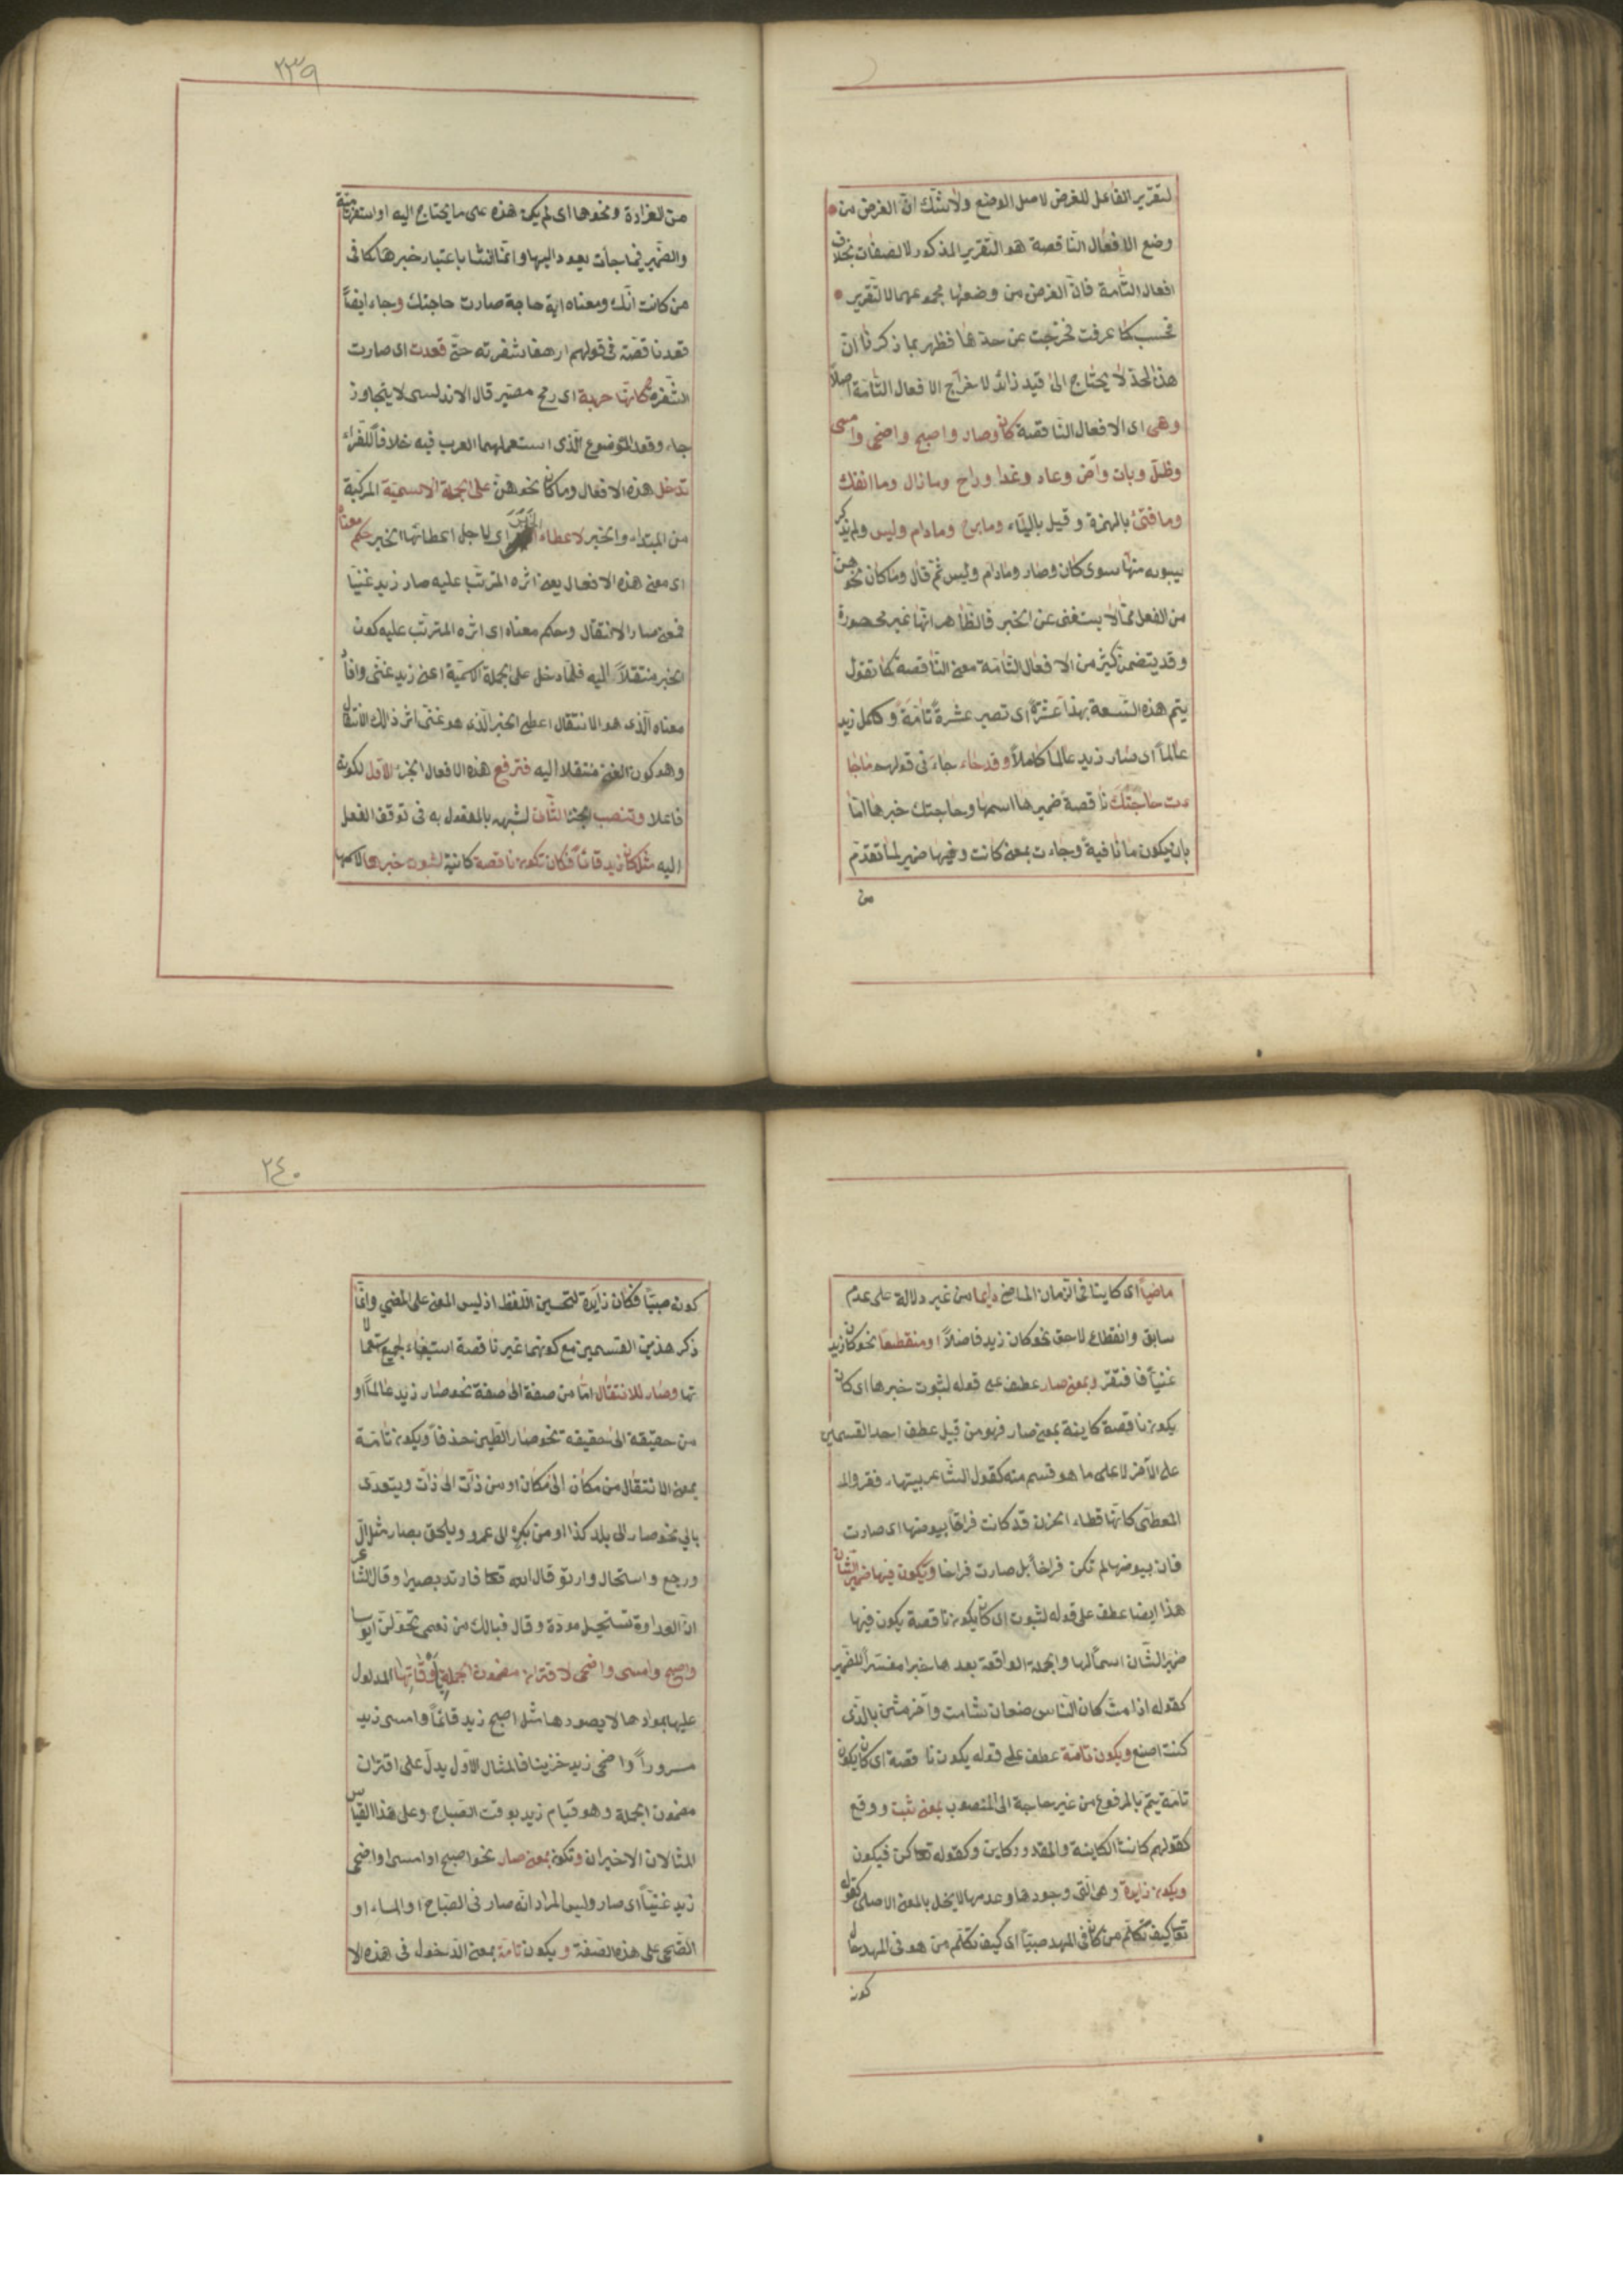 ٢٣٩
لتقرير الفاعل للغرض لاصل الوضع ولاشك ان الغرض من
وضع الافعال الناقصة هو التقرير المذكور لا الصفات بخلاف
افعال التامة فان الغرض من وضعها مجموعهما لا التقرير
فحسب كما عرفت فخرجت عن حدها فظهر بما ذكرنا ان
هذا الحد لا يحتاج الى قيد زائد لاخراج الافعال التامة اصلا
وهى اى الافعال الناقصة كان وصار واصبح واضحى وامسى
وظل وبات وآض وعاد وغدا وراح ومازال وما انفك
وما فتئ بالهمزة وقيل بالياء وما برح ومادام وليس ولم يذكر
سيبويه منها سوى كان وصار ومادام وليس ثم قال وما كان نحوهن
من الفعل مما لا يستغنى عن الخبر فالظاهر انها غير محصورة
وقد يتضمن كثير من الافعال التامة معنى الناقصة كما تقول
يتم هذه التسعة بهذا عشرة اى تصير عشرة تامة وكمل زيد
عالما اى صار زيد عالما كاملا وقد جاء جاء فى قولهم ماجا
ءت حاجتك ناقصة ضميرها اسمها وحاجتك خبرها اما
بان يكون ما نافية وجاءت بمعنى كانت وفيها ضمير لما تقدم
من
من الغرارة ونحوها اى لم يكن هذه على ما يحتاج اليه او استفهامية
والضمير فيما جأت يعود اليها وانما انثا باعتبار خبرها كما فى
من كانت امك ومعناه اية حاجة صارت حاجتك وجاء ايضا
قعد ناقصة فى قولهم ارهف شفرته حتى قعدت اى صارت
الشفرة كانها حربة اى رمح مصير قال الاندلسى لا يتجاوز
جاء وقعد الموضوع الذى استعملهما العرب فيه خلافا للفراء
تدخل هذه الافعال وما كان نحوهن على الجملة الاسمية المركبة
من المبتداء والخبر لاعطاء الخبر اى لاجل اعطائها الخبر حكم معناها
اى معنى هذه الافعال يعنى اثره المترتب عليه صار زيد غنيا
فمعنى صار الانتقال وحكم معناه اى اثره المترتب عليه كون
الخبر منتقلا اليه فلما دخل على الجملة الاسمية اعنى زيد غنى وافا
معناه الذى هو الانتقال اعطى الخبر الذى هو غنى اثر ذلك الانتقال
وهو كون الغنى منتقلا اليه فترفع هذه الافعال الجزء الاول لكونه
فاعلا وتنصب الجزء الثانى لشبهه بالمفعول به فى توقف الفعل
اليه مثل كان زيد قائما فكان تكون ناقصة كائنة لثبوت خبرها لاسمها
٢٤٠
ماضيا اى كاينا فى الزمان الماضى دايما من غير دلالة على عدم
سابق وانقطاع لاحق نحو كان زيد فاضلا او منقطعا نحو كان زيد
غنيا فافتقر وبمعنى صار عطف على قوله لثبوت خبرها اى كان
يكون ناقصة كاينة بمعنى صار فهو من قبيل عطف احد القسمين
على الآخر لا على ما هو قسم منه كقول الشاعر بيتهاء قفر والم
المعطى كانها قطاء الحزن قد كانت فراخا بيوضها اى صارت
فان بيوضها لم تكن فراخا بل صارت فراخا ويكون فيها ضمير الشان
هذا ايضا عطف على قوله لثبوت اى كان يكون ناقصة يكون فيها
ضمير الشان اسما لها والجملة الواقعة بعدها خبرا مفسرا للضمير
كقوله اذا مت كان الناس صنفان شامت وآخر مثن بالذى
كنت اصنع ويكون تامة عطف على قوله يكون ناقصة اى كان يكون
تامة يتم بالمرفوع من غير حاجة الى المنصوب بمعنى ثبت ووقع
كقولهم كانت الكاينة والمقدور كاين وكقوله تعا كن فيكون
ويكون زايدة وهى التى وجودها وعدمها لا يخل بالمعنى الاصلى كقوله
تعا كيف نكلم من كان فى المهد صبيا اى كيف نكلم من هو فى المهد حال
كونه
كونه صبيا فكان زايدة لتحسين اللفظ اذ ليس المعنى على المضي وانما
ذكر هذين القسمين مع كونهما غير ناقصة استيفاء لجميع استعمالا
تها وصار للانتقال اما من صفة الى صفة نحو صار زيد عالما او
من حقيقة الى حقيقه نحو صار الطين خذفا ويكون تامة
بمعنى الانتقال من مكان الى مكان او من ذات الى ذات ويتعدى
بالى نحو صار الى بلد كذا او من بكر الى عمرو ويلحق بصار مثل آل
ورجع واستحال وارتد قال الله تعا فارتد بصيرا وقال الشاعر
ان العداوة تستحيل مودة وقال فيالك من نعمى تحولن ابوسا
واصبح وامسى واضحى لاقتران مضمون الجملة باوقاتها المدلول
عليها بموادها لا بصورها مثل اصبح زيد قائما وامسى زيد
مسرورا واضحى زيد حزينا فالمثال الاول يدل على اقتران
مضمون الجملة وهو قيام زيد بوقت الصباح وعلى هذا القياس
المثالان الاخيران وتكون بمعنى صار نحو اصبح او امسى او اضحى
زيد غنيا اى صار وليس المراد انه صار فى الصباح او المساء او
الضحى على هذه الصفة ويكون تامة بمعنى الدخول فى هذه الا